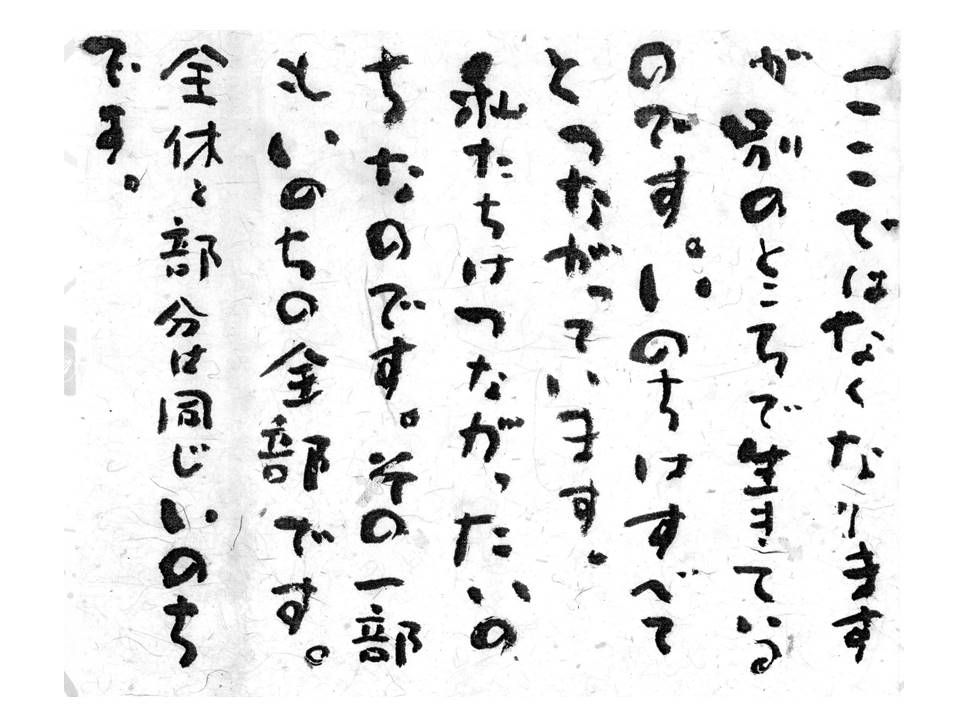 一ここではなくなります
が別のところで生きている
のです。いのちはすべて
とつながっています。
私たちはつながったいの
ちなのです。その一部
もいのちの全部です。
全体と部分は同じいのち
です。